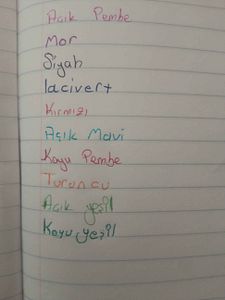 Açık Pembe
Mor
Siyah
lacivert
Kırmızı
Açık Mavi
Koyu Pembe
Turuncu
Açık yeşil
Koyu yeşil